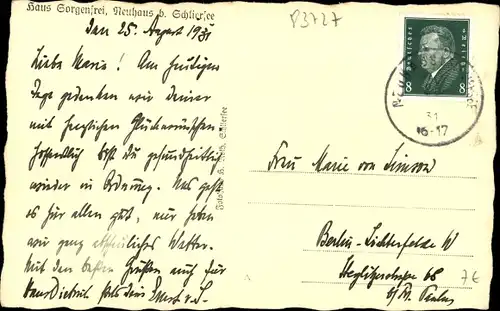 Haus Sorgenfrei, Neuhaus b. Schliersee
P3727
den 25. August 1931
Liebe Marie! Am heutigen
Tage gedenken wir Deiner
mit herzlichen Glückwünschen
hoffentlich bist du gesundheitlich
wieder in Ordnung. Uns geht
es für allen gut, nur haben
wir ganz abscheuliches Wetter.
Mit den besten Grüßen auch für
Hans Dietrich stets Dein Ernst v. S.
Deutsches Reich
8 8
31
16-17
Frau Marie von Simson
Berlin-Lichterfelde W
Steglitzerstrasse 68
b/M.
7€